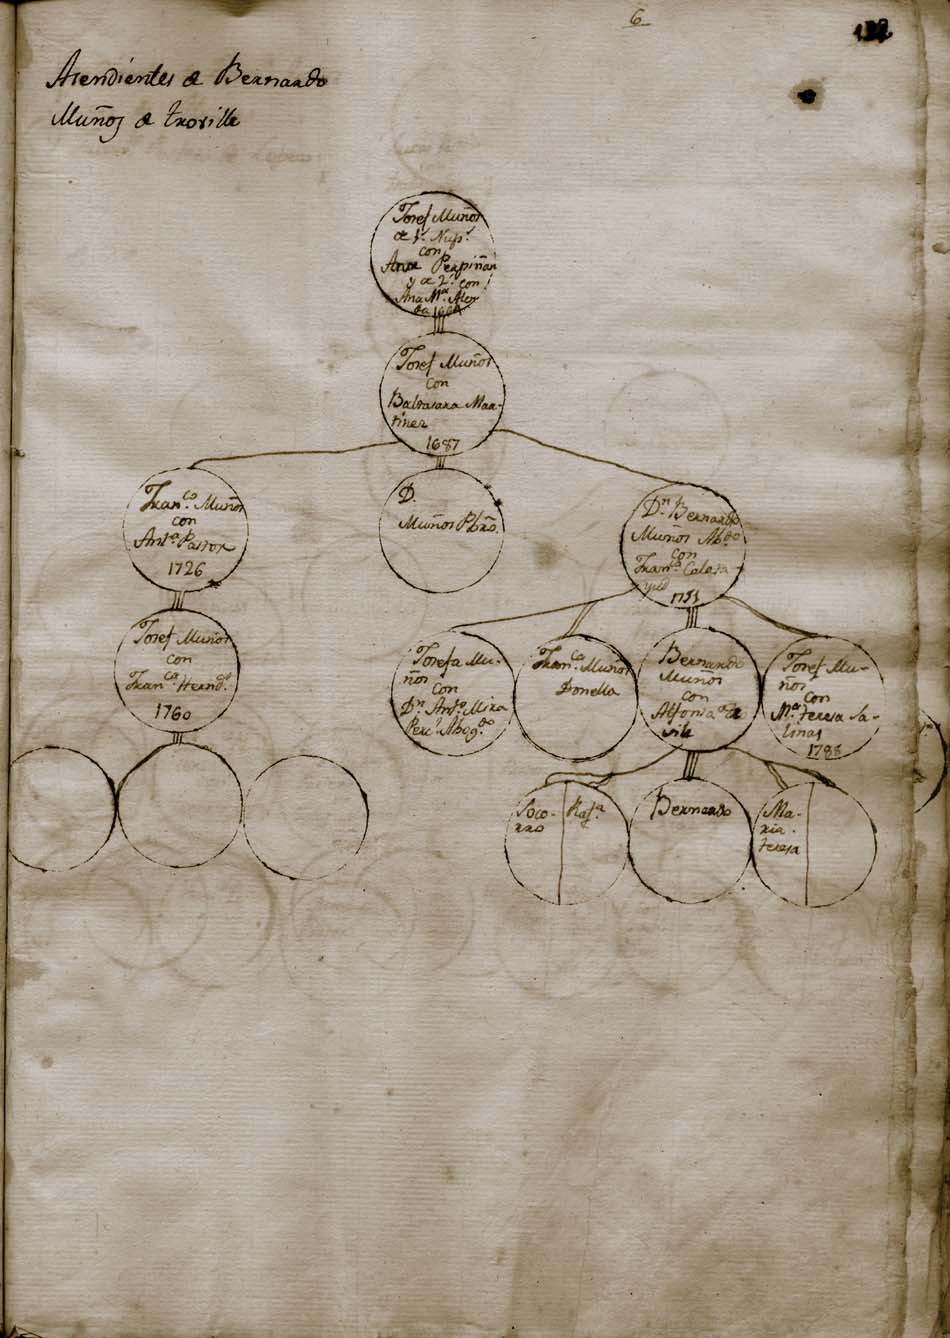 6
Asendientes de Bernardo
Muños de troville
Josef Muños
de 1.ª Nup.s
con
Ana Perpiñan
y de 2.ª con
Ana M.ª
Josef Muños
con
Baltasara Mar-
tines
1687
Fran.co Muños
con
Ant.ª Pastor
1726
D.
Muños Pbro.
D.n Bernardo
Muños Ab.do
con
Fran.ca Calata
yud
Josef Muños
con
Fran.ca Hernd.s
1760
Josefa Mu-
ños
con
D.n Ant.o Mira
Perc.l Abog.do
Fran.ca Muños
Donella
Bernardo
Muños
con
Alfonsa
Josef Mu-
ños
con
M.ª teresa Sa-
linas
1788
Soco-
rro
Raf.ª
Bernardo
Ma-
ria
teresa